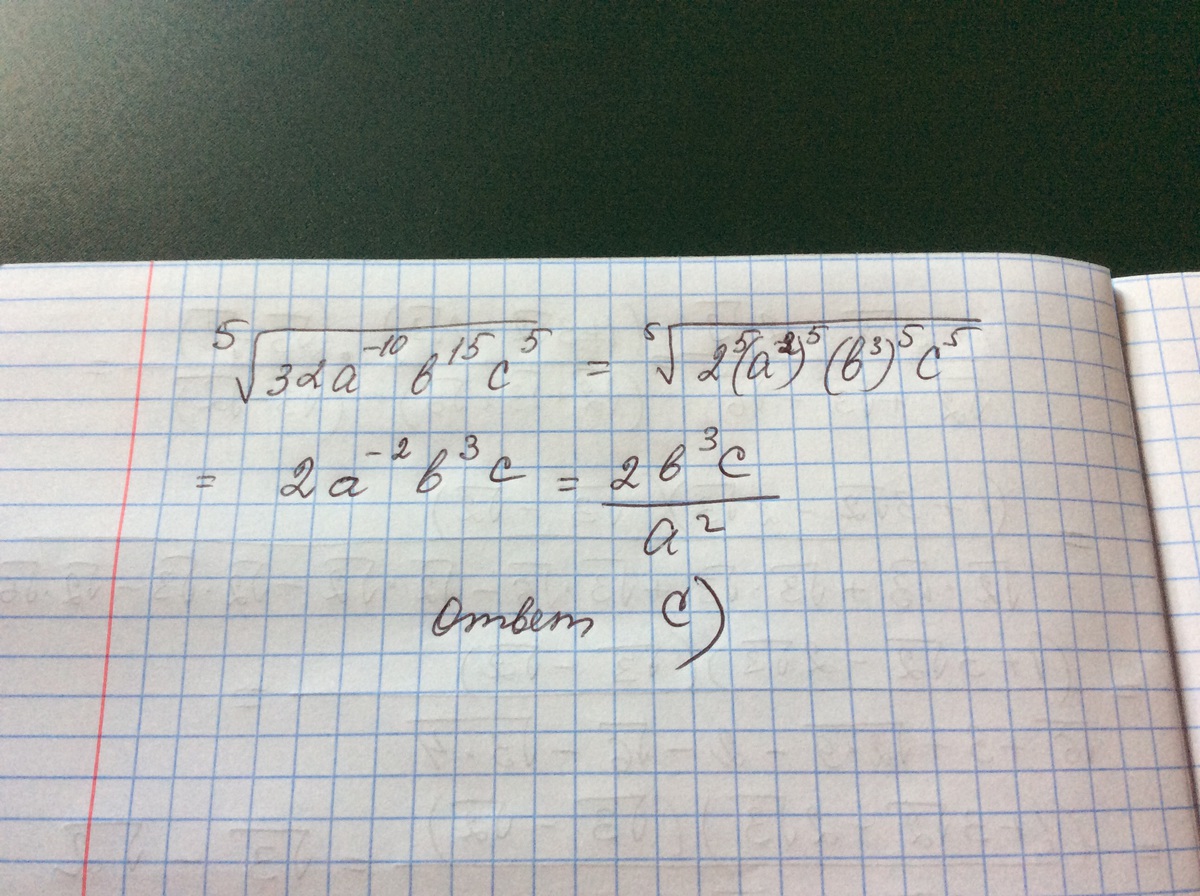 ⁵√(32a⁻¹⁰b¹⁵c⁵) = ⁵√(2⁵(a⁻²)⁵(b³)⁵c⁵)
= 2a⁻²b³c = 2b³c / a²
Ответ C)